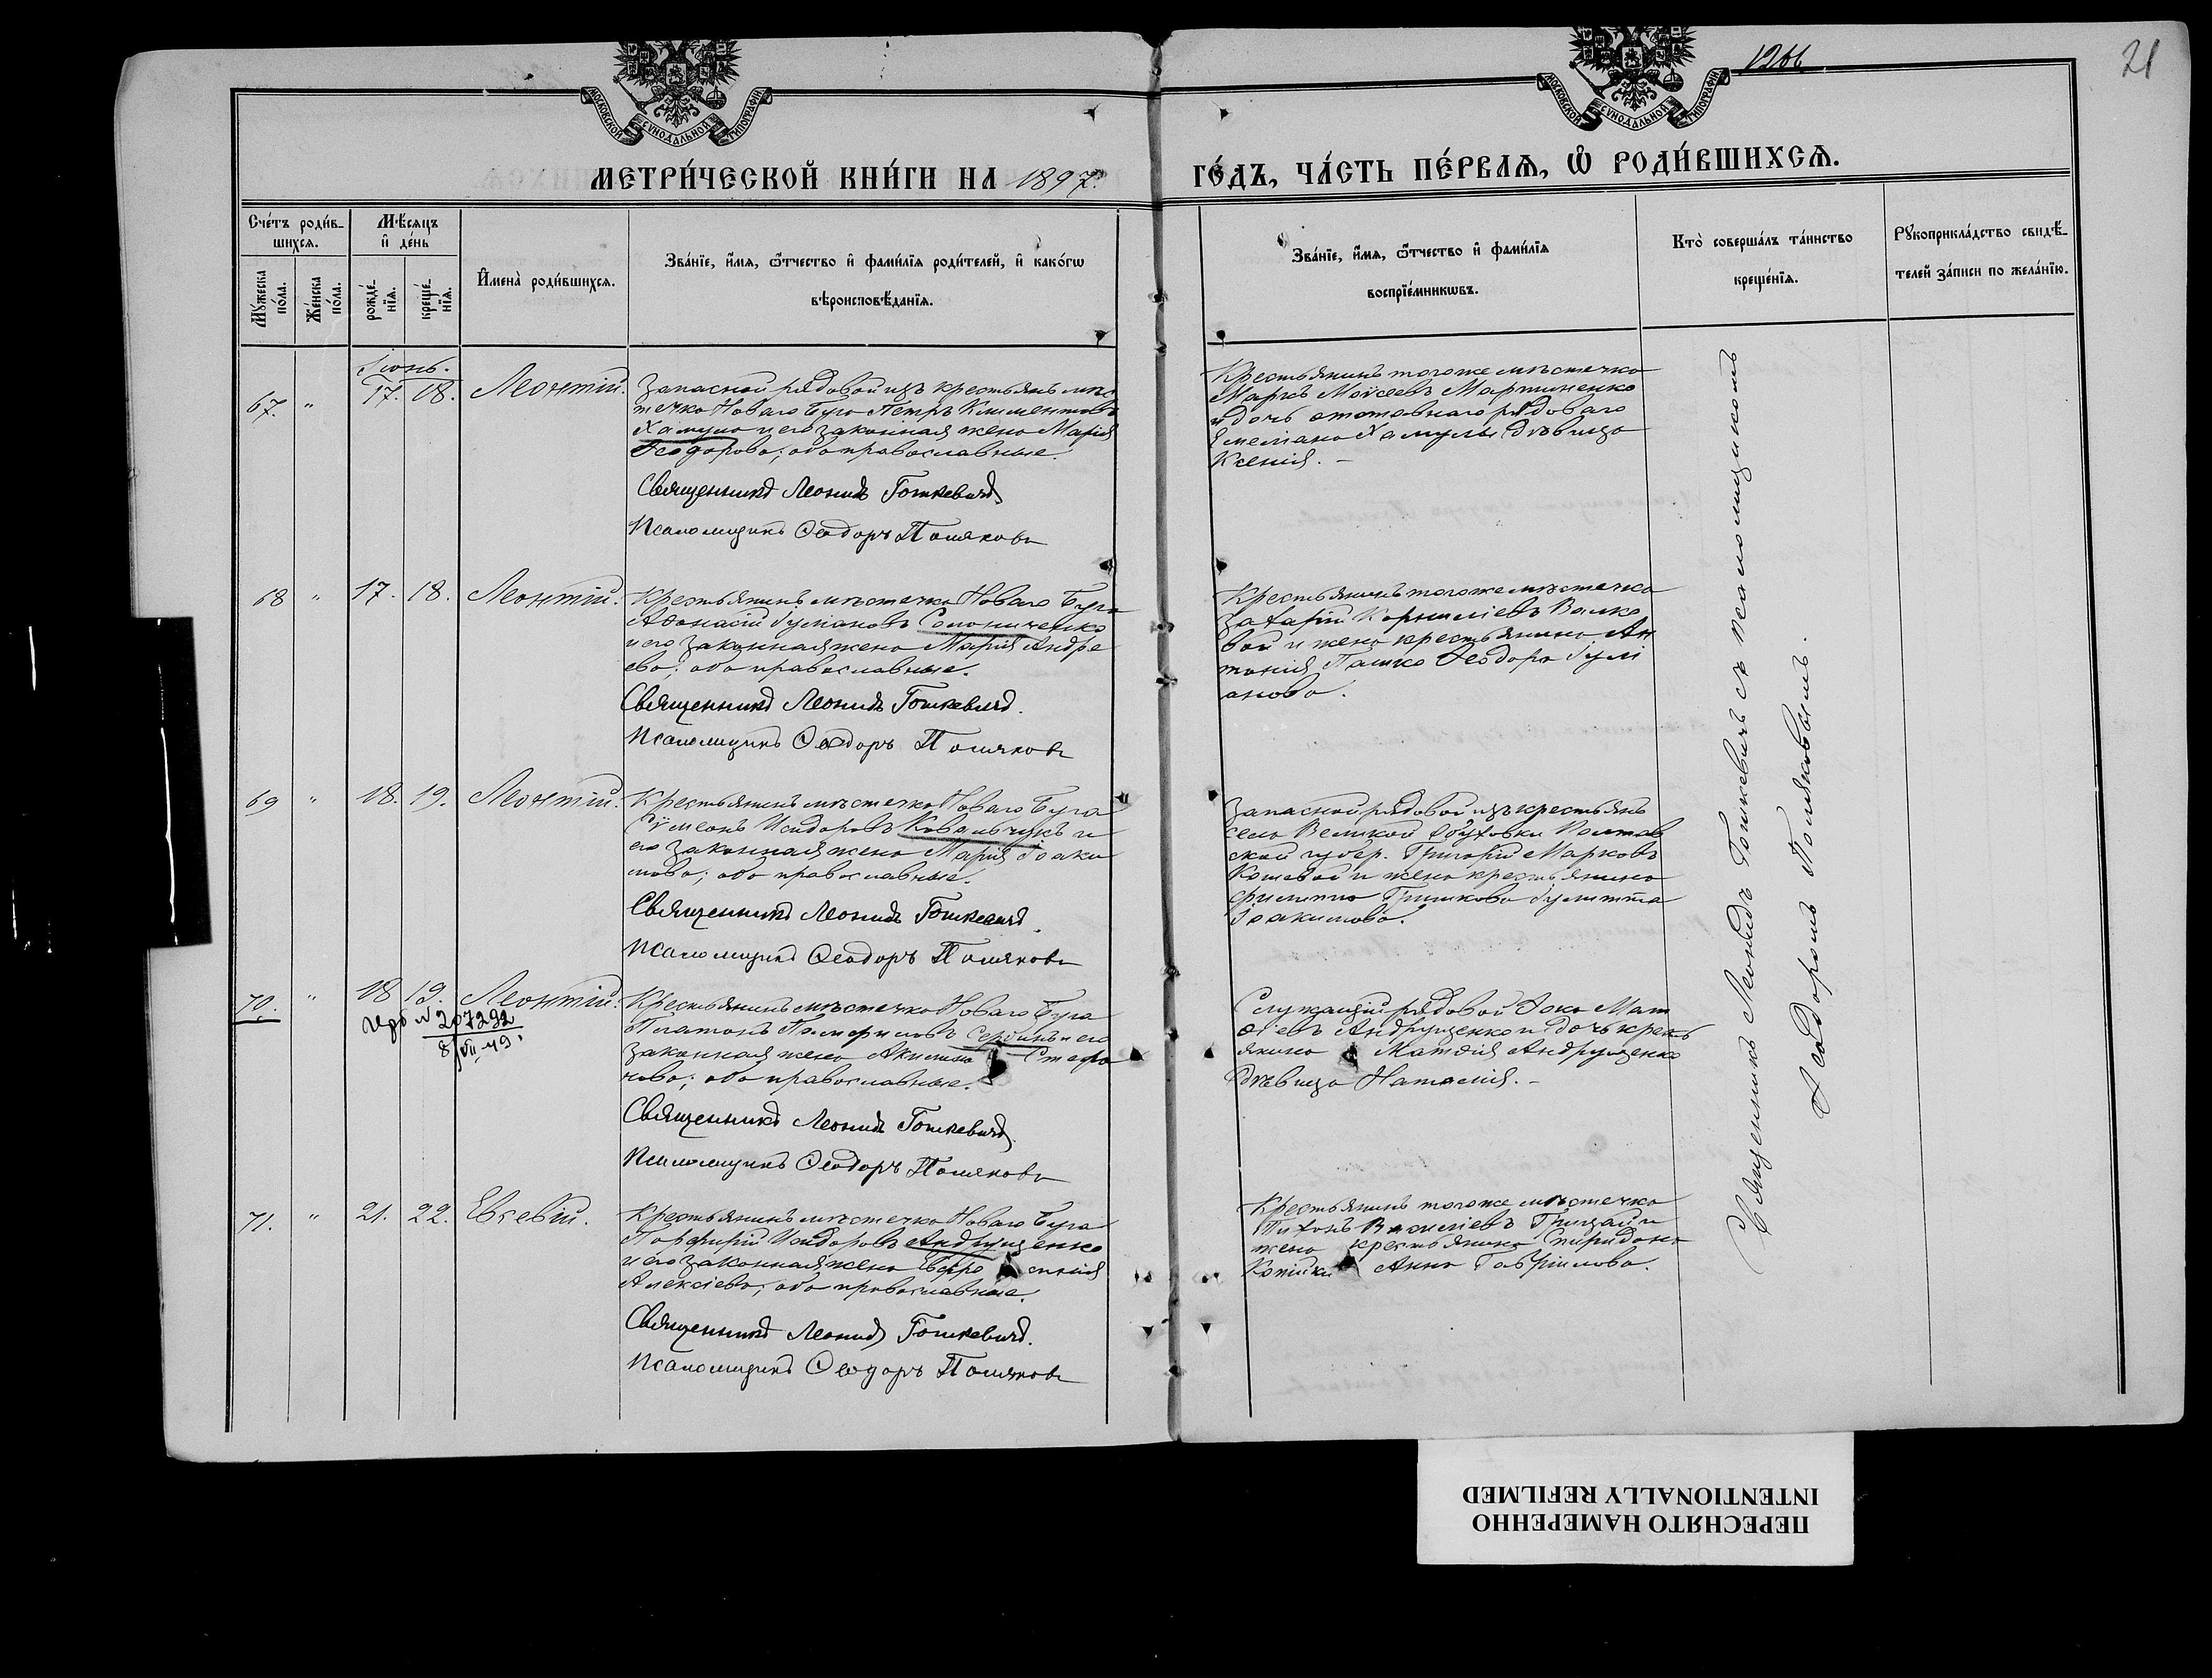 1266
21
МОСКОВСКОЙ СѴНОДАЛЬНОЙ ТИПОГРАФІИ
МОСКОВСКОЙ СѴНОДАЛЬНОЙ ТИПОГРАФІИ
МЕТРИ́ЧЕСКОЙ КНИ́ГИ НА 1897
ГО́ДЪ, ЧА́СТЬ ПЕ́РВАѦ, Ѿ РОДИ́ВШИХСѦ.
Сче́тъ роди́в-
шихсѧ.
Мѣ́сѧцъ
и҆ де́нь
Мꙋ́жеска
по́ла.
Же́нска
по́ла.
рожде́-
нїѧ.
креще́-
нїѧ.
И҆мена̀ роди́вшихсѧ.
Зва́нїе, и҆́мѧ, ѻ҆́тчество и҆ фами́лїѧ роди́телей, и҆ како́гѡ
вѣроисповѣ́данїѧ.
Зва́нїе, и҆́мѧ, ѻ҆́тчество и҆ фами́лїѧ
воспрїе́мникѡвъ.
Кто̀ соверша́лъ та́инство
креще́нїѧ.
Рꙋкоприкла́дство свидѣ́-
телей за́писи по жела́нїю.
Іюнь.
67. " 17. 18. Леонтій.
Запасной рядовой изъ крестьянъ мѣс
течка Новаго Буга Петръ Климентовъ
Хамула и его законная жена Марія
Ѳеодорова; оба православные.
Священникъ Леонидъ Гошкевичъ
Псаломщикъ Ѳеодоръ Поляковъ
Крестьянинъ того же мѣстечка
Маркъ Моѵсеевъ Мартиненко
и дочь отставнаго рядоваго
Емеліана Хамулы дѣвица
Ксенія. –
68 " 17. 18. Леонтій.
Крестьянинъ мѣстечка Новаго Буга
Аѳанасій Іуліановъ Солониченко
и его законная жена Марія Андре
ева; оба православные.
Священникъ Леонидъ Гошкевичъ.
Псаломщикъ Ѳеодоръ Поляковъ
Крестьянинъ того же мѣстечка
Захарій Корниліевъ Валко
вой и жена крестьянина Ан
тонія Пашко Ѳеодора Іулі
анова.
69 " 18. 19. Леонтій.
Крестьянинъ мѣстечка Новаго Буга
Сѵмеонъ Исидоровъ Ковальчукъ и
его законная жена Марія Іоаки
мова; оба православные.
Священникъ Леонидъ Гошкевичъ.
Псаломщикъ Ѳеодоръ Поляковъ
Запасной рядовой изъ крестьянъ
села Великой Обуховки Полтав
ской губер. Григорій Марковъ
Кошевой и жена крестьянина
Филиппа Гришкова Іулитта
Іоакимова.
70. " 18 19. Леонтій.
№ 207232
8/VII-49.
Крестьянинъ мѣстечка Новаго Буга
Платонъ Памфиловъ Сербинъ и его
законная жена Акилина Стефа
нова; оба православные.
Священникъ Леонидъ Гошкевичъ.
Псаломщикъ Ѳеодоръ Поляковъ
Служащій рядовой Іона Мат
ѳіевъ Андрущенко и дочь крест
янина Матѳія Андрущенко
дѣвица Наталія. –
71. " 21. 22. Евсевій.
Крестьянинъ мѣстечка Новаго Буга
Порфирій Исидоровъ Андрущенко
и его законная жена Евфро синія
Алексіева; оба православные.
Священникъ Леонидъ Гошкевичъ.
Псаломщикъ Ѳеодоръ Поляковъ
Крестьянинъ того же мѣстечка
Тихонъ Василіевъ Грицай и
жена крестьянина Спиридона
Копійки Анна Гавріилова.
Священникъ Леонидъ Гошкевичъ съ псаломщикомъ
Ѳеодоромъ Поляковымъ.
ПЕРЕСНЯТО НАМЕРЕННО
INTENTIONALLY REFILMED